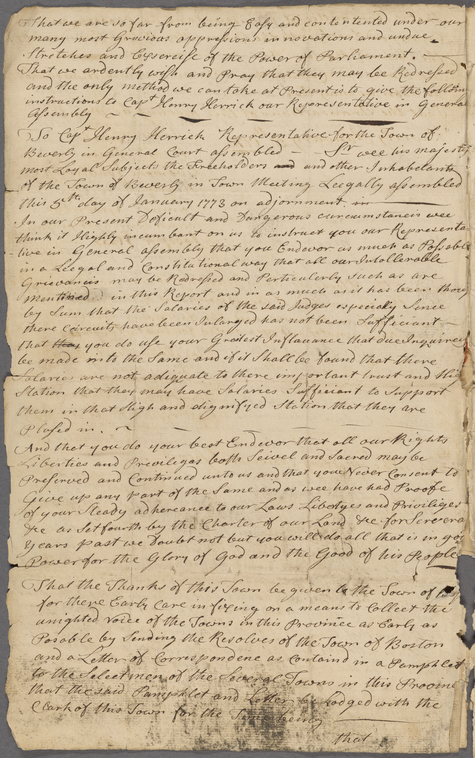 That we are so far from being Easy and contentented under our
many most Grevious appressions innovations and undue
Stretches and Exercise of the Power of Parliament.
That we ardently wish and Pray that they may be Redressed
and the only method we can take at Present is to give the following
instructions to Capt Henry Herrick our Representative in General
Assembly
To Capt Henry Herrick Representative for the Town of
Beverly in General Court assembled Sr wee his majestys
most Loyal Subjects the Freeholders and other Inhabetants
of the Town of Beverly in Town Meeting Leegally assembled
this 5th day of January 1773 on adjornment in
In our Present Deficult and Dangerous curcumstances wee
think it Highly incumbant on us to instruct you our Representa-
-tive in General assembly that you Endevor as much as Possable
in a Leegal and Constitutional way that all our Intollerable
Grievancis may be Redressed and Particulerly Such as are
mentined in this Report and in as much as it has been thout
by Sum that the Salaries of the said Judges especialy Since
there circuits have been Inlarged has not been Sufficiant
that you do use your Greatest Influance that due Inquirey
be made into the Same and if it Shall be found that there
Salaries are not adiquate to there important trust and this
Station that they may have Salaries Sufficiant to Support
them in that High and dignifyed Station that they are
Plased in.
And that you do your best Endevor that all our Rights
Liberties and Previligas both Seivel and Sacred may be
Preserved and Continued unto us and that you Never Consent to
Give up any part of the Same and as wee have had Proofe
of your Steady adhereance to our Laws Libertyes and Priviliges
&c as Set fourth by the Charter of our Land &c for Severeal
Years Past we Doubt not but you will do all that is in
Power for the Glory of God and the Good of his People
That the Thanks of this Town be given to the Town of
for there Early Care in fixing on a means to Collect the
unighted Voice of the Towns in this Province as Early as
Posable by Sending the Resolves of the Town of Boston
and a Letter of Correspondene as Containd in a Pamphlet
to the Selectmen of the Several Towns in this Provinc
that the said Pamphlet and Letter Lodged with the
Clark of this Town for the Time being
that